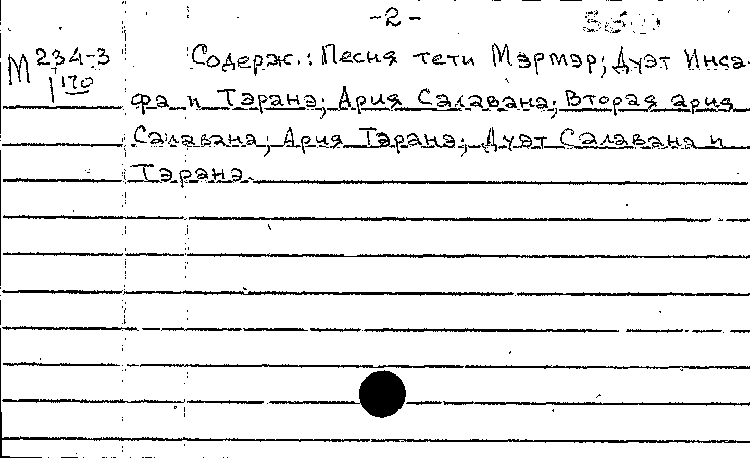 -2-
М 234-3
170
Содерж.: Песня тети Мэрмэр; Дуэт Инса-
фа и Тэранэ; Ария Салавана; Вторая ария
Салавана; Ария Тэранэ; Дуэт Салавана и
Тэранэ.